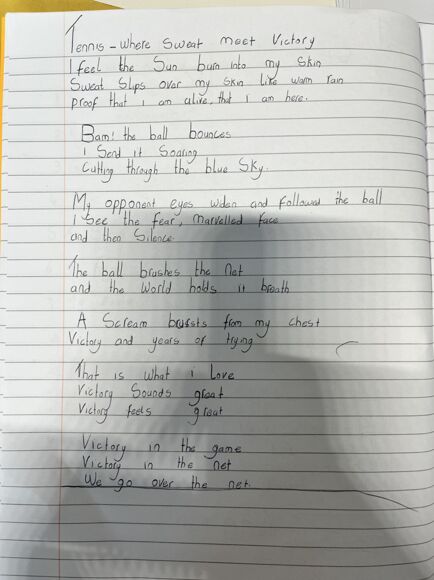 Tennis - where Sweat meet Victory
I feel the Sun burn into my Skin
Sweat Slips over my Skin like warm rain
Proof that i am alive, that I am here.
Bam! the ball bounces
i Send it Soaring
Cutting through the blue Sky.
My opponent eyes widen and followed the ball
i See the fear, marvelled face
and then Silence.
The ball brushes the net
and the World holds it breath
A Scream brusts from my chest
Victory and years of trying
That is what i Love
Victory Sounds great
Victory feels great
Victory in the game
Victory in the net
We go over the net.